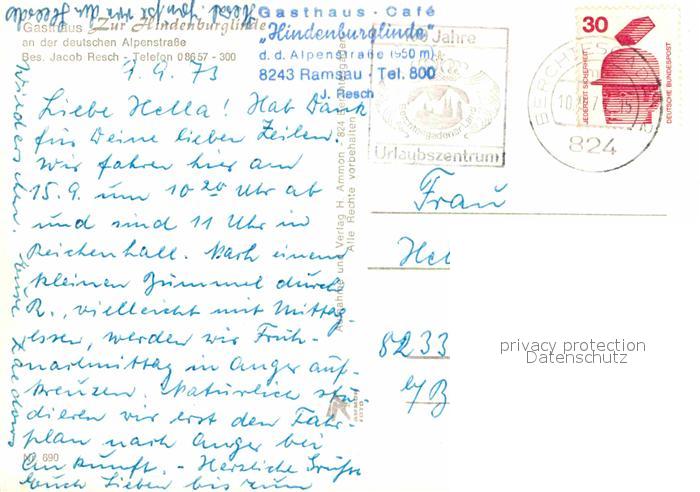 Gasthaus „Zur Hindenburglinde"
an der deutschen Alpenstraße
Bes. Jacob Resch - Telefon 08657 - 300
Gasthaus - Café
„Hindenburglinde"
d. d. Alpenstraße (850 m)
8243 Ramsau · Tel. 800
J. Resch
Jahre
Berchtesgadener Land
Urlaubszentrum
30
JEDERZEIT SICHERHEIT
DEUTSCHE BUNDESPOST
BERCHTESGADEN
824
9.9.73
Liebe Hella! Hab Dank
für Deine lieben Zeilen.
Wir fahren hier am
15.9. um 10 20 Uhr ab
und sind 11 Uhr in
Reichenhall. Nach einem
kleinen Bummel durch
R., vielleicht mit Mittag
essen, werden wir Früh-
nachmittag in Anger auf-
kreuzen. Natürlich stu-
dieren wir erst den Fahr-
plan nach Anger bei
Ankunft. - Herzliche Grüße
Euch Lieben bis zum
Wiedersehen. Eure
Aufnahme und Verlag H. Ammon - 824 Berchtesgaden
Alle Rechte vorbehalten
Frau
Hel
8233
b/B
Nr. 690
privacy protection
Datenschutz